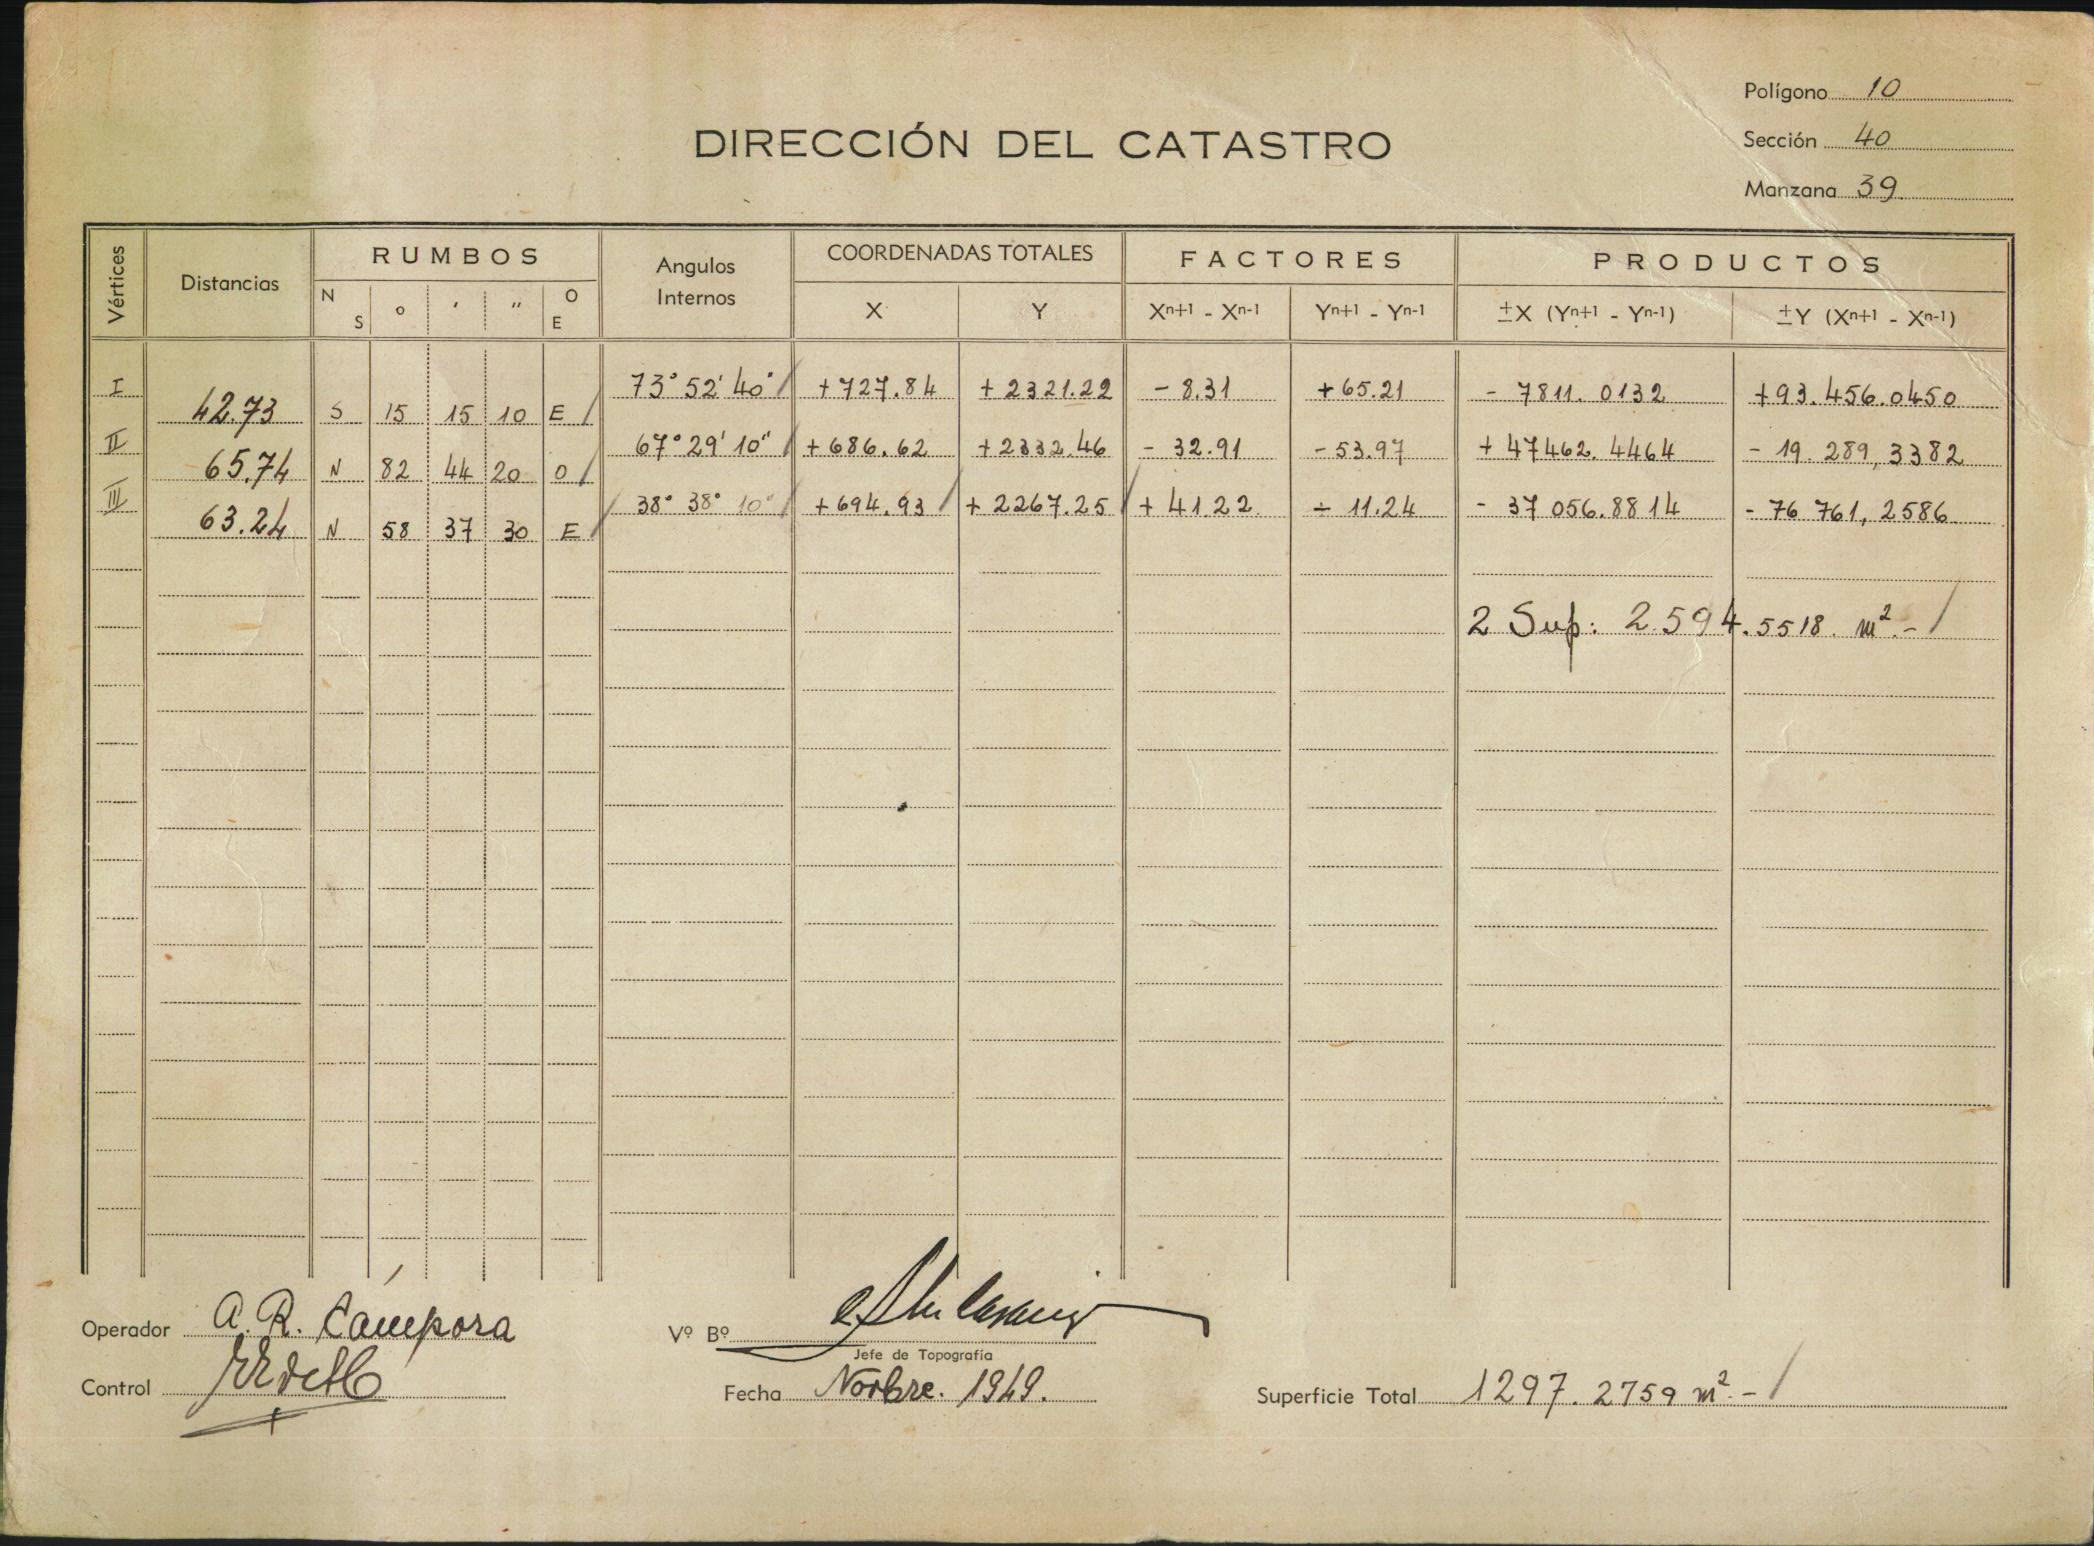 Polígono 10
DIRECCIÓN DEL CATASTRO
Sección 40
Manzana 39
Vértices Distancias RUMBOS Angulos Internos COORDENADAS TOTALES FACTORES PRODUCTOS
N S ° ' " O E X Y Xn+1 - Xn-1 Yn+1 - Yn-1 ±X (Yn+1 - Yn-1) ±Y (Xn+1 - Xn-1)
I 73° 52' 40" +727.84 +2321.22 -8.31 +65.21 -7811.0132 +93.456.0450
42.73 S 15 15 10 E
II 67° 29' 10" +686.62 +2332.46 -32.91 -53.97 +47462.4464 -19.289,3382
65.74 N 82 44 20 O
III 38° 38° 10" +694.93 +2267.25 +41.22 ÷ 11.24 -37 056.8814 -76 761,2586
63.24 N 58 37 30 E
2 Sup: 2594.5518. m².-
Operador A. R. Cámpora
Vº Bº
Jefe de Topografía
Control
Fecha Novbre. 1949.
Superficie Total 1297.2759 m².-